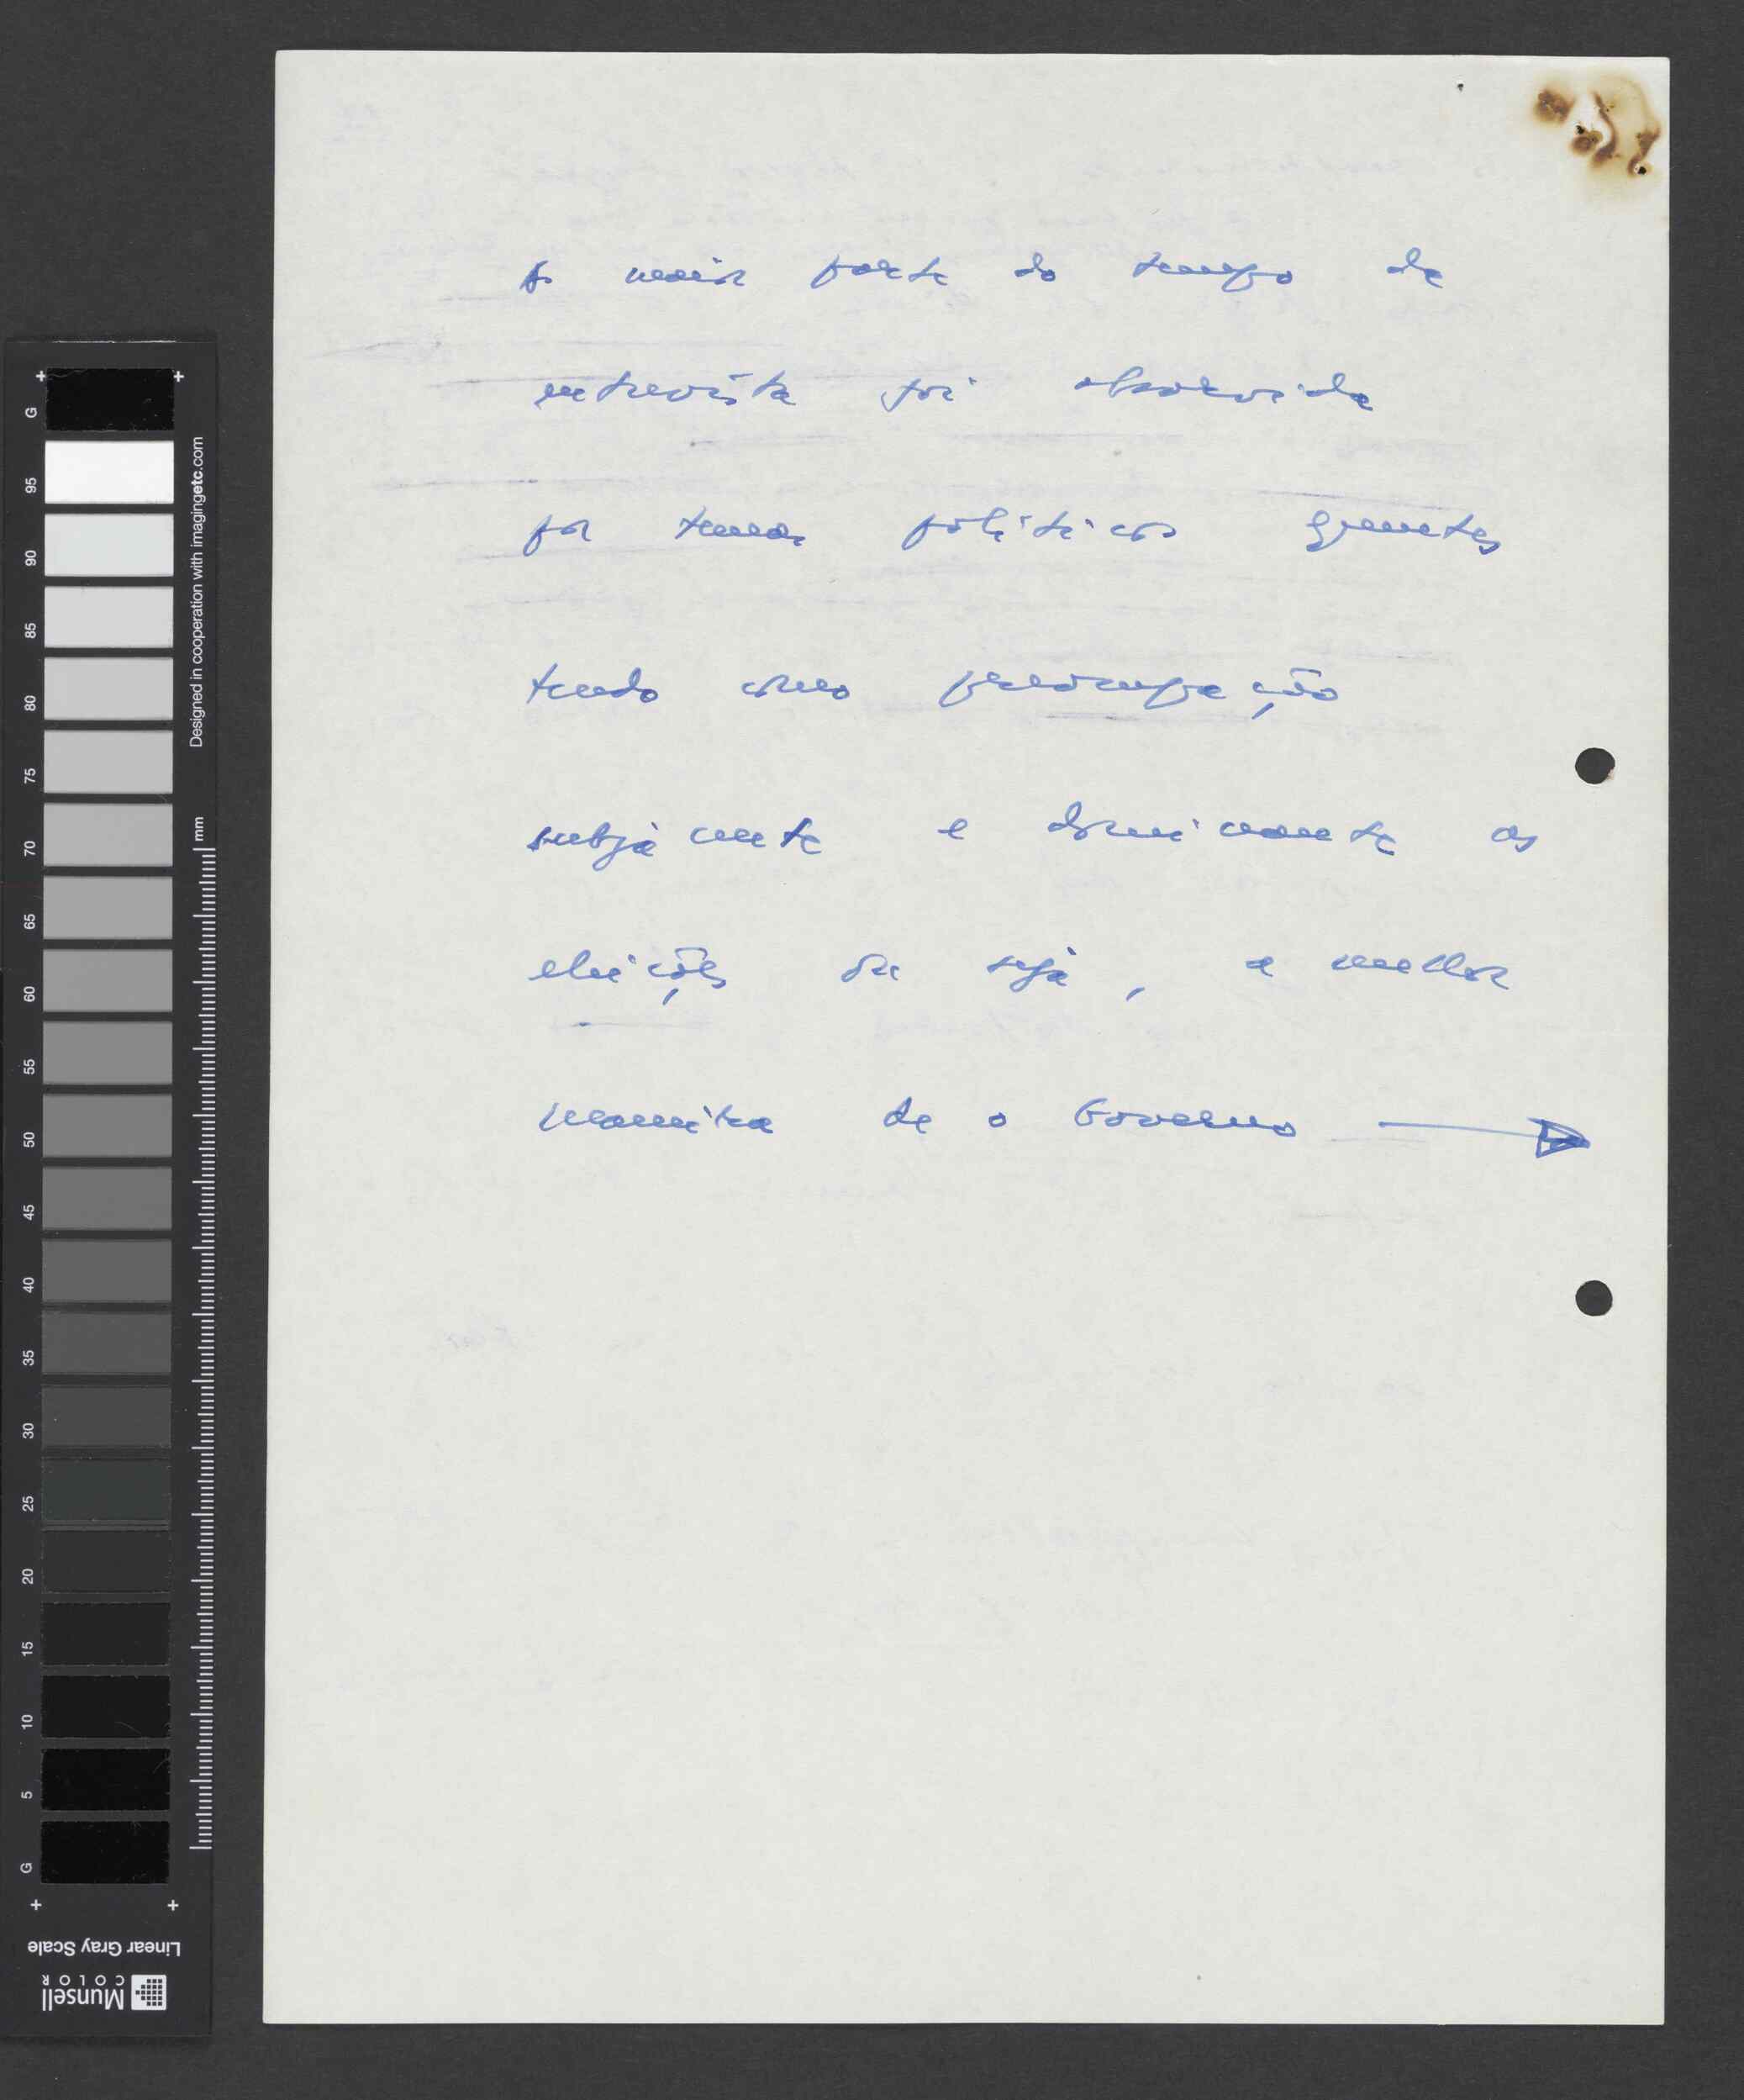 A maior parte do tempo da
entrevista foi absorvida
por temas políticos
tendo como preocupação
subjacente e dominante as
eleições ou seja, a melhor
maneira de o Governo
Designed in cooperation with imagingetc.com
mm
G
95
90
85
80
75
70
65
60
55
50
45
40
35
30
25
20
15
10
5
G
Linear Gray Scale
Munsell
COLOR